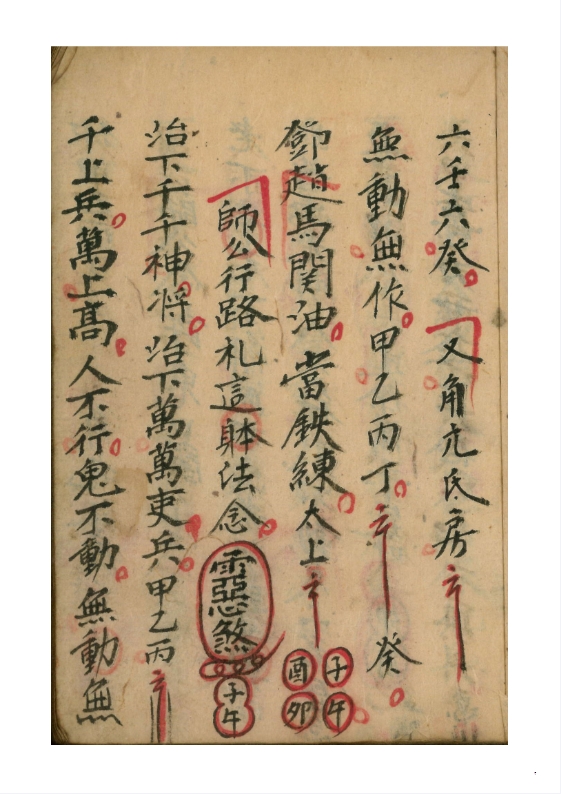 六壬六癸又角亢氐房
無動無作甲乙丙丁癸
鄧趙馬関油當鉄練太上子午酉卯
師公行路札這躰法念雲惡煞子午
治下千千神将治下萬萬吏兵甲乙丙
千上兵萬上高人不行鬼不動無動無